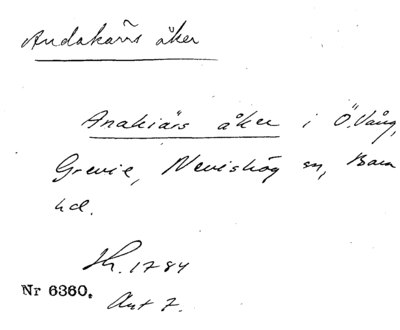 Andakärrs åker
Anakiärs åker i Ö. Vång,
Grevie, Nevishög sn, Bara
hd.
Sk. 1784
Nr 6360.
Akt 7.